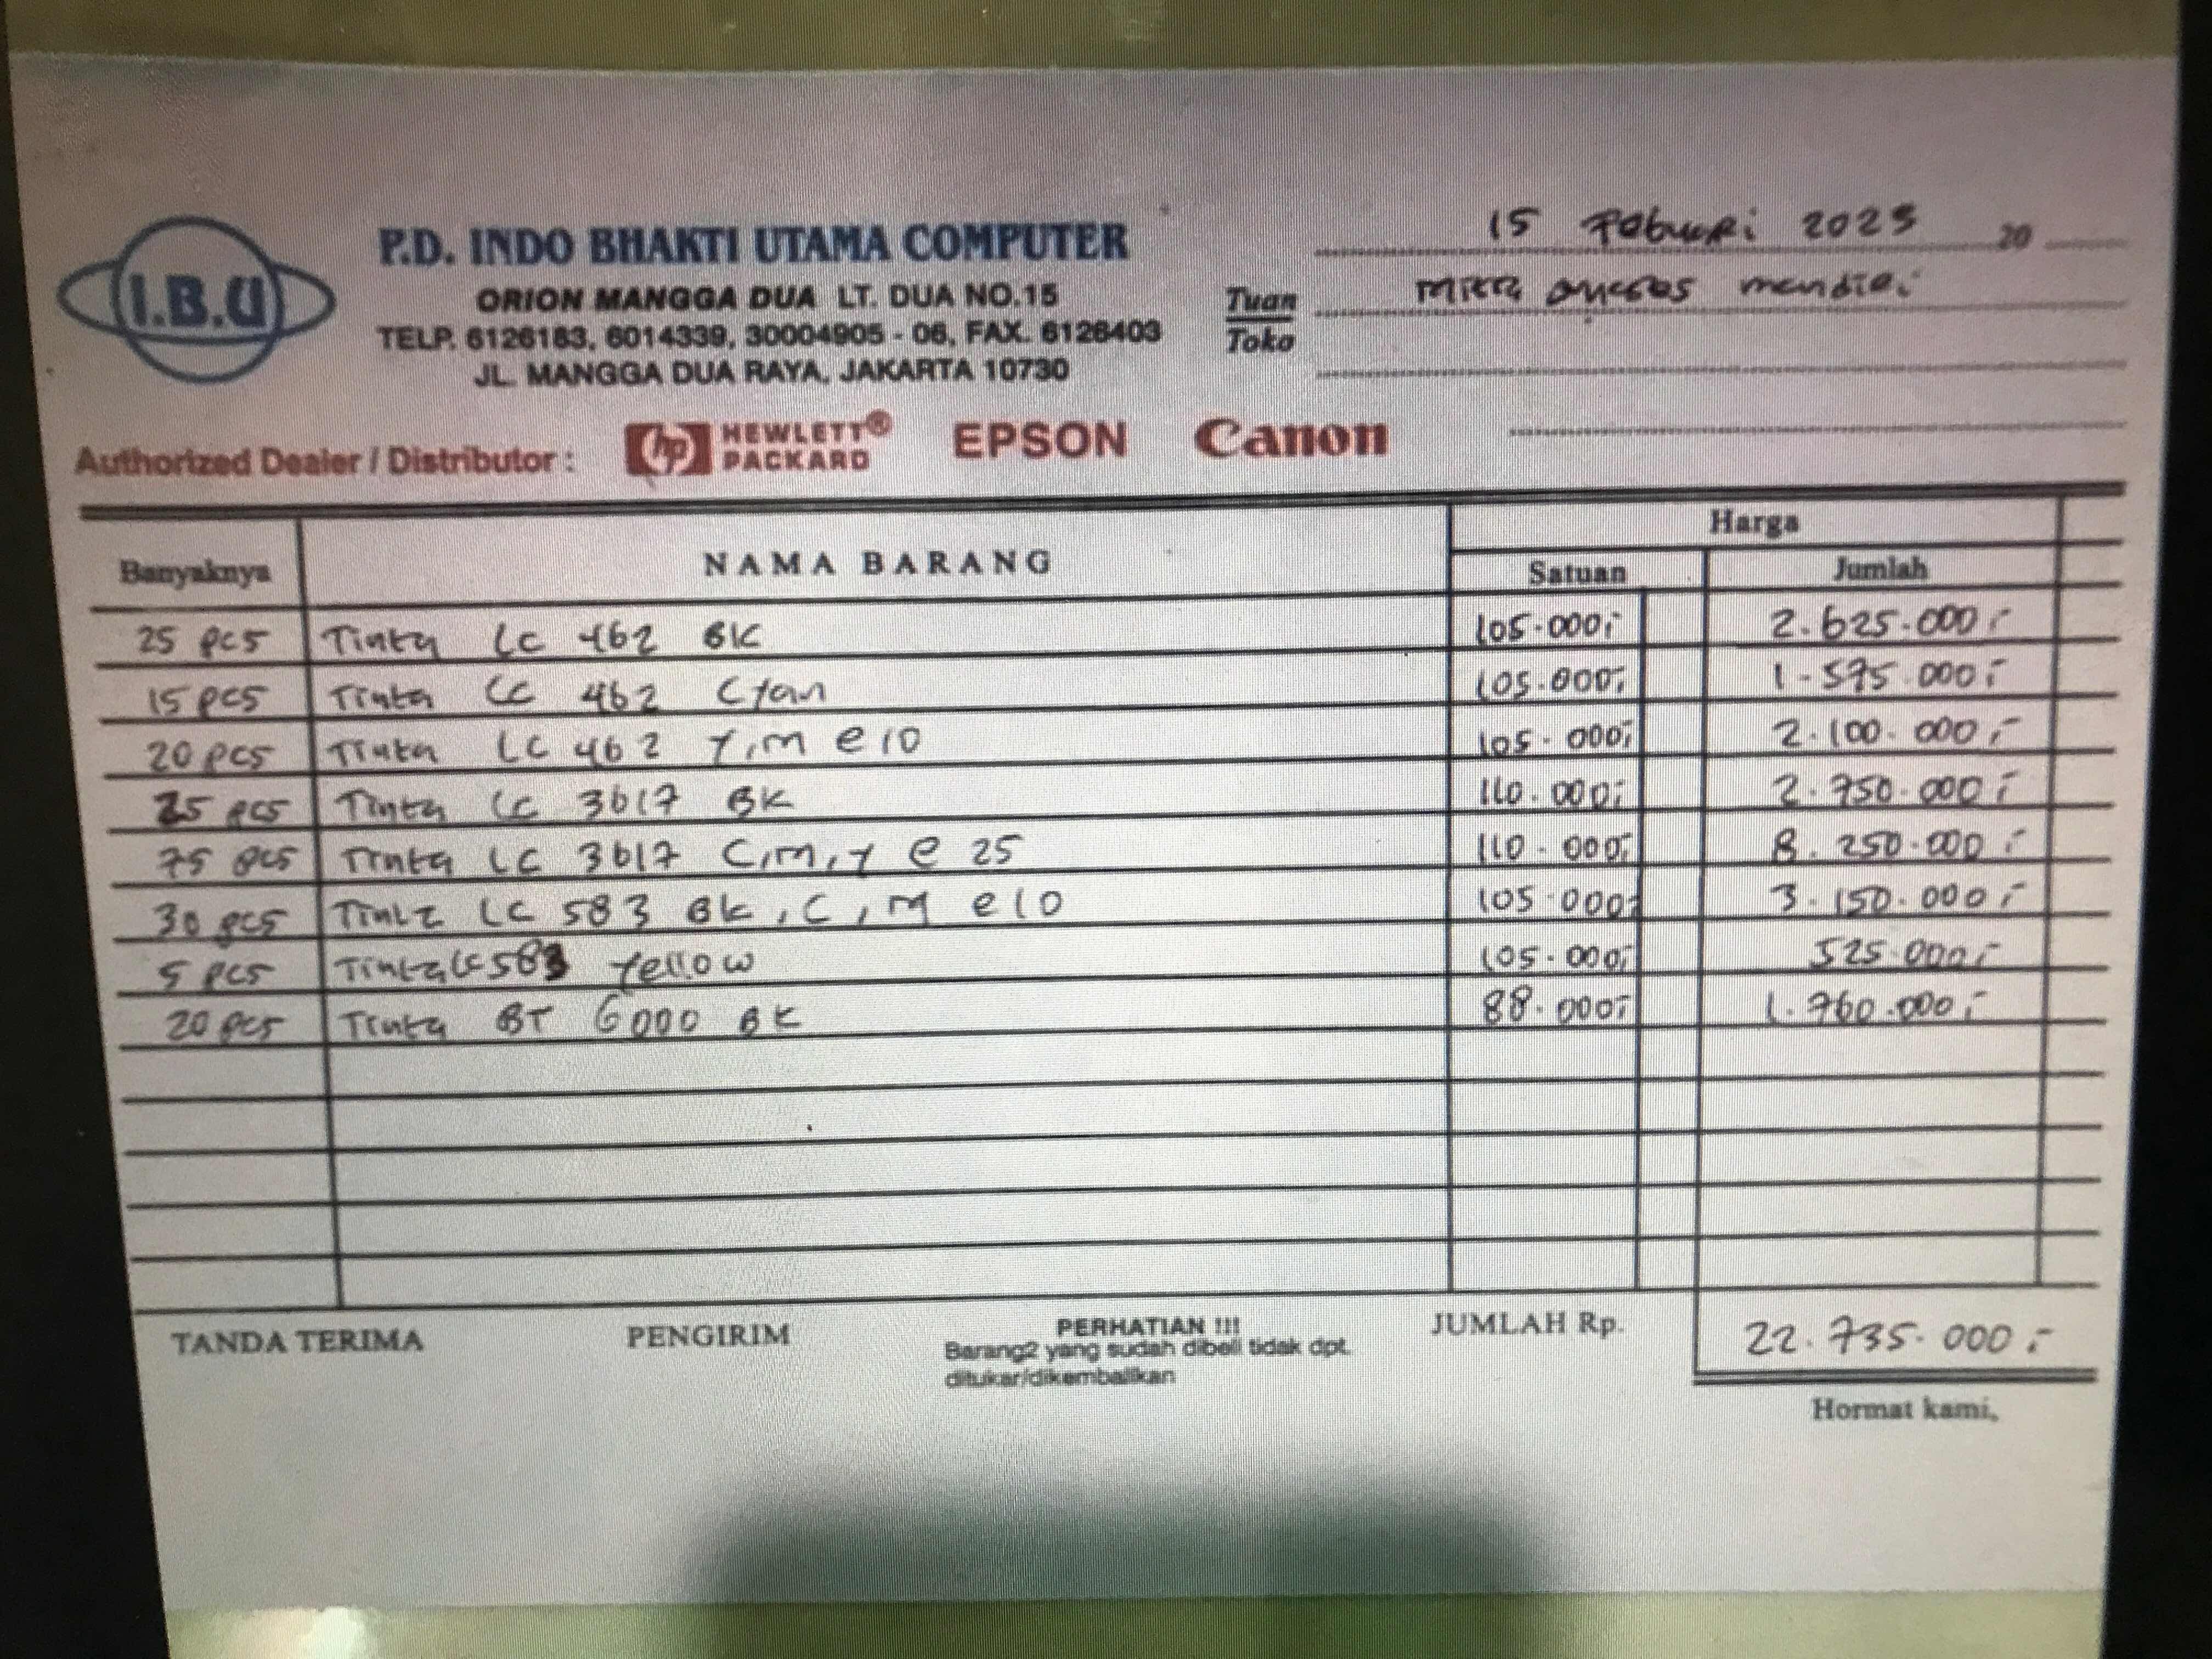 I.B.U
P.D. INDO BHAKTI UTAMA COMPUTER
ORION MANGGA DUA LT. DUA NO.15
TELP. 6126183, 6014339, 30004905 - 06, FAX. 6126403
JL. MANGGA DUA RAYA, JAKARTA 10730
15 Februari 2023 20
Tuan
Toko
mitra mandiri
Authorized Dealer / Distributor : hp HEWLETT® PACKARD EPSON Canon
Banyaknya NAMA BARANG Harga
Satuan Jumlah
25 pcs Tinta LC 462 BK 105.000,- 2.625.000,-
15 pcs Tinta LC 462 Cyan 105.000,- 1.575.000,-
20 pcs Tinta LC 462 Y,m @ 10 105.000,- 2.100.000,-
25 pcs Tinta LC 3617 BK 110.000,- 2.750.000,-
75 pcs Tinta LC 3617 C,m,Y @ 25 110.000,- 8.250.000,-
30 pcs Tinta LC 583 Bk, C, M @ 10 105.000,- 3.150.000,-
5 pcs Tinta LC 583 Yellow 105.000,- 525.000,-
20 pcs Tinta BT 6000 BK 88.000,- 1.760.000,-
TANDA TERIMA PENGIRIM PERHATIAN !!! JUMLAH Rp. 22.735.000,-
Barang2 yang sudah dibeli tidak dpt.
ditukar/dikembalikan
Hormat kami,